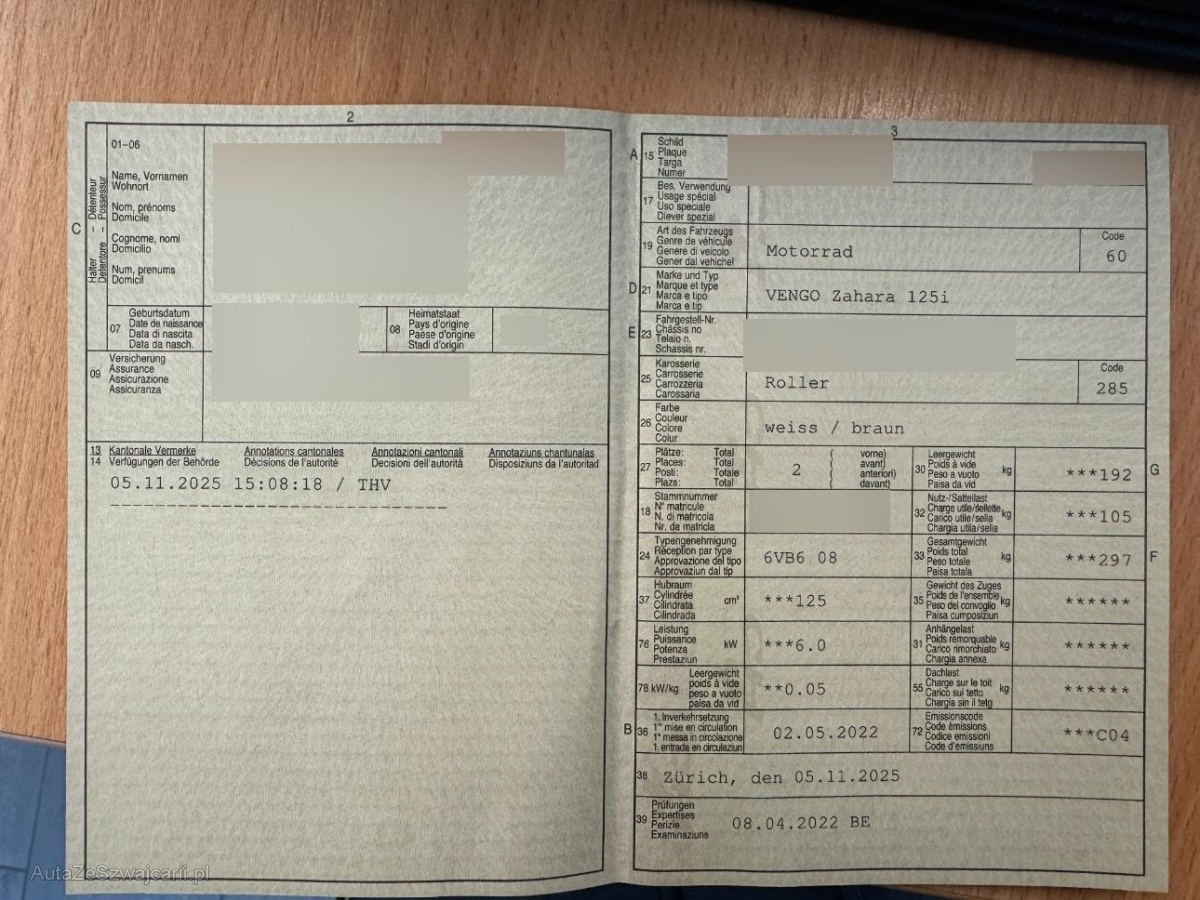 2
01–06
Name, Vornamen
Wohnort
Nom, prénoms
Domicile
Cognome, nomi
Domicilio
Num, prenums
Domicil
C
Halter – Détenteur
Detentore – Possessur
07
Geburtsdatum
Date de naissance
Data di nascita
Data da nasch.
08
Heimatstaat
Pays d'origine
Paese d'origine
Stadi d'origin
09
Versicherung
Assurance
Assicurazione
Assicuranza
13 Kantonale Vermerke Annotations cantonales Annotazioni cantonali Annotaziuns chantunalas
14 Verfügungen der Behörde Décisions de l'autorité Decisioni dell'autorità Disposiziuns da l'autoritad
05.11.2025 15:08:18 / THV
3
A 15
Schild
Plaque
Targa
Numer
17
Bes. Verwendung
Usage spécial
Uso speciale
Diever spezial
19
Art des Fahrzeugs
Genre de véhicule
Genere di veicolo
Gener dal vehichel
Motorrad
Code
60
D 21
Marke und Typ
Marque et type
Marca e tipo
Marca e tip
VENGO Zahara 125i
E 23
Fahrgestell-Nr.
Châssis no
Telaio n.
Schassis nr.
25
Karosserie
Carrosserie
Carrozzeria
Carossaria
Roller
Code
285
26
Farbe
Couleur
Colore
Colur
weiss / braun
27
Plätze: Total
Places: Total
Posti: Totale
Plazs: Total
2
( vorne)
( avant)
( anteriori)
( davant)
30
Leergewicht
Poids à vide
Peso a vuoto
Paisa da vid
kg
***192
G
18
Stammnummer
N° matricule
N. di matricola
Nr. da matricla
32
Nutz-/Sattellast
Charge utile/sellette
Carico utile/sella
Chargia utila/sella
kg
***105
24
Typengenehmigung
Réception par type
Approvazione del tipo
Approvaziun dal tip
6VB6 08
33
Gesamtgewicht
Poids total
Peso totale
Paisa totala
kg
***297
F
37
Hubraum
Cylindrée
Cilindrata
Cilindrada
cm³
***125
35
Gewicht des Zuges
Poids de l'ensemble
Peso del convoglio
Paisa cumposiziun
kg
******
76
Leistung
Puissance
Potenza
Prestaziun
kW
***6.0
31
Anhängelast
Poids remorquable
Carico rimorchiato
Chargia annexa
kg
******
78 kW/kg
Leergewicht
poids à vide
peso a vuoto
paisa da vid
**0.05
55
Dachlast
Charge sur le toit
Carico sul tetto
Chargia sin il tetg
kg
******
B 36
1. Inverkehrsetzung
1re mise en circulation
1a messa in circolazione
1. entrada en circulaziun
02.05.2022
72
Emissionscode
Code émissions
Codice emissioni
Code d'emissiuns
***C04
38 Zürich, den 05.11.2025
39
Prüfungen
Expertises
Perizie
Examinaziuns
08.04.2022 BE
AutaZeSzwajcarii.pl